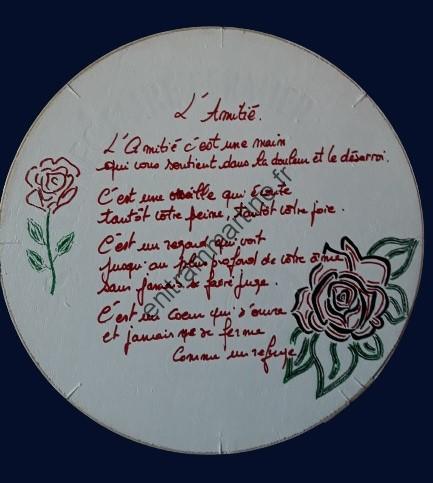 L'Amitié.
L'Amitié c'est une main
qui vous soutient dans la douleur et le désarroi.
C'est une oreille qui écoute
tantôt votre peine, tantôt votre joie.
C'est un regard qui voit
jusqu'au plus profond de votre âme
sans jamais se faire juge.
C'est un coeur qui s'ouvre
et jamais ne se ferme
Comme un refuge